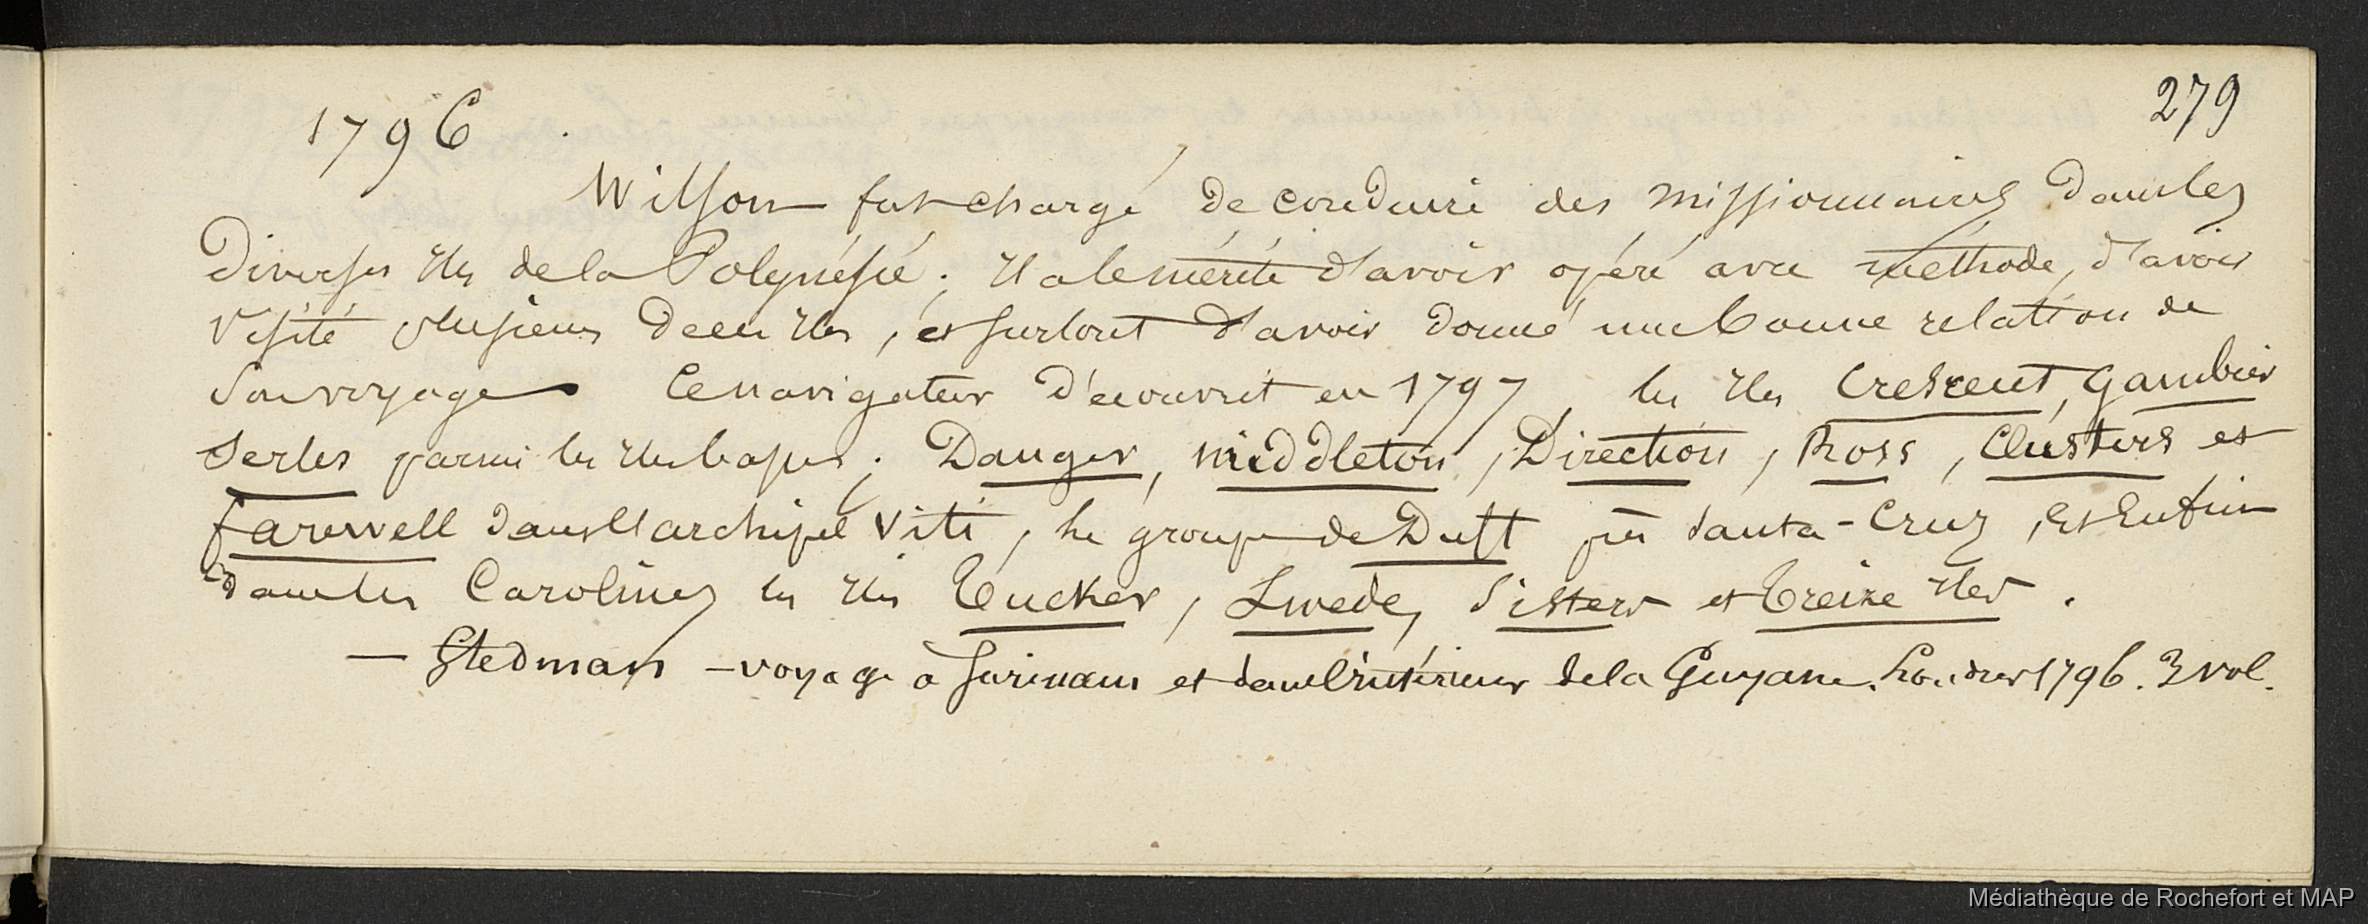 279
1796
Wilson fut chargé de conduire des missionnaires dans les
Diverses Iles de la Polynésie ; Il a le mérite d'avoir opéré avec méthode, d'avoir
Visité plusieurs de ces Iles, et surtout d'avoir donné une bonne relation de
Son voyage Ce navigateur Découvrit en 1797, les Iles Crescent, Gambier
Serles parmi les Iles basses ; Danger, Middleton, Direction, Ross, Clusters et
farewell dans l'archipel Viti, le groupe de Duff près Santa-Cruz, Et Enfin
dans les Carolines les Iles Tucker, Swede, Sisters et Treize Iles.
— Stedman – voyage à Surinam et dans l'intérieur de la Guyane. Londres 1796. 3 vol.
Médiathèque de Rochefort et MAP